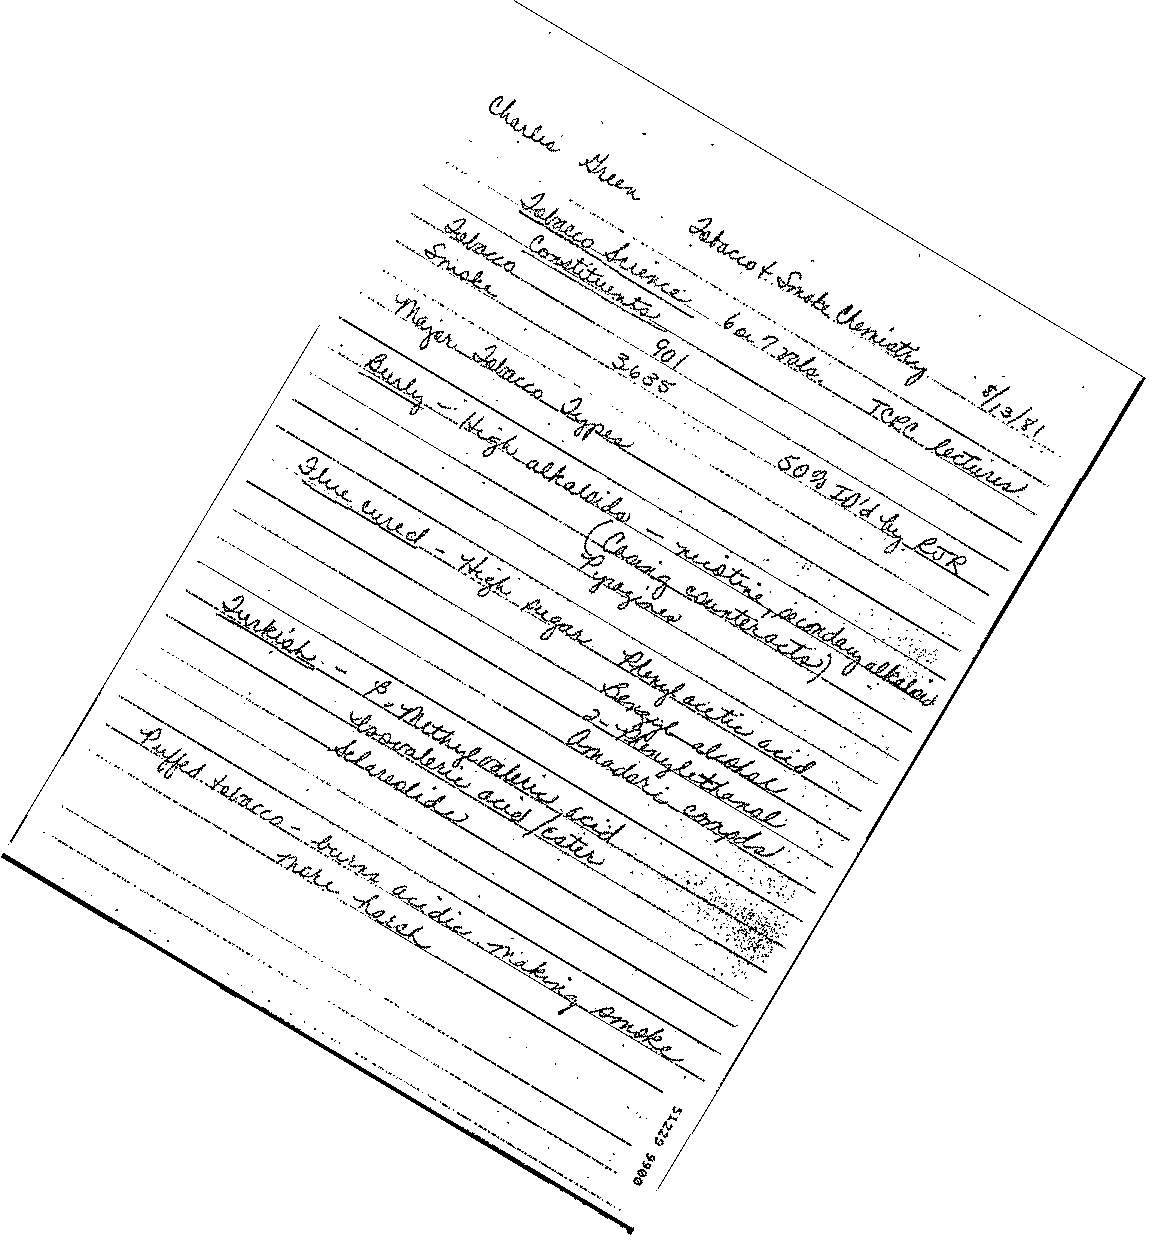 Charlie Green Tobacco & Smoke Chemistry 8/13/81
Tobacco Science 6 or 7 vols. TCRC lectures
Constituents
Tobacco 901
Smoke 3635 50% ID'd by RJR
Major Tobacco Types
Burley - High alkaloids - nicotine, secondary alkaloids
(Casing counteracts)
Pyrazines
Flue cured - High sugar Phenylacetic acid
Benzyl alcohol
2-Phenylethanol
Amadori compds
Turkish - β-Methylvaleric acid
Isovaleric acid/ester
Sclareolide
Puffed tobacco - burns acidic making smoke
more harsh
51229 9900